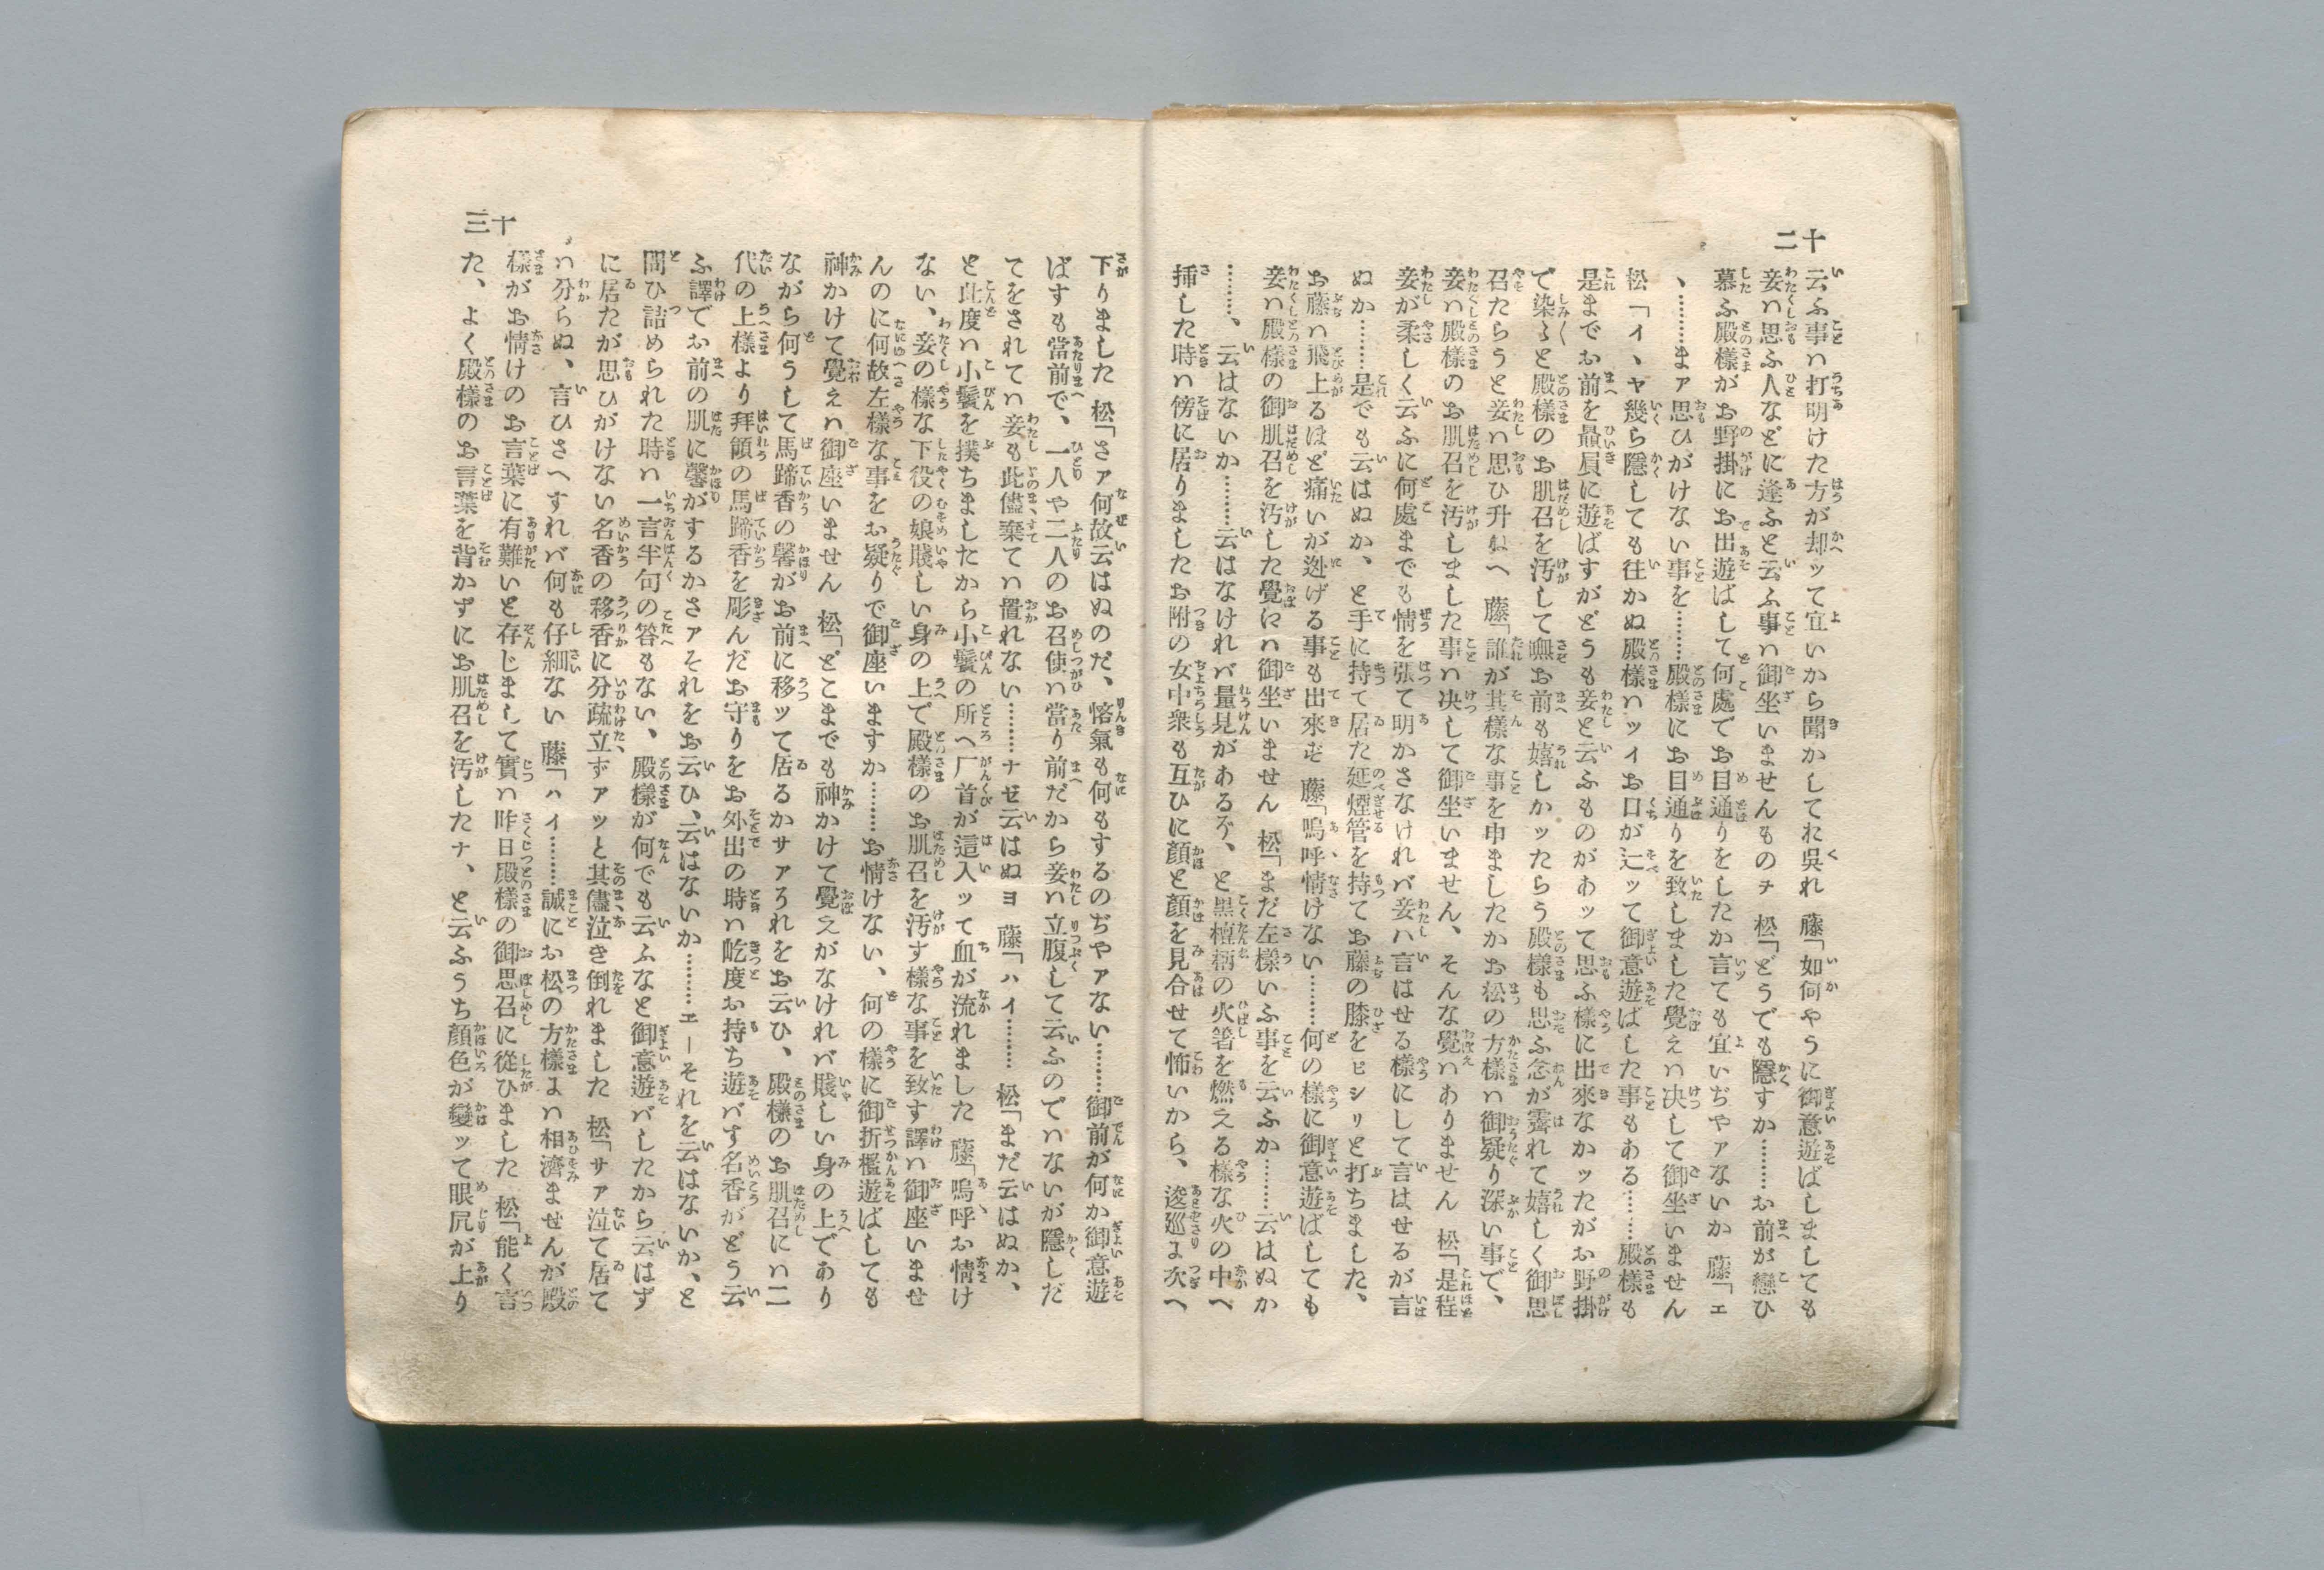 十二
云ふ事ハ打明けた方が却ッて宜いから聞かしてお呉れ　藤「如何やうに御意遊ばしましても
妾ハ思ふ人などに逢ふと云ふ事ハ御坐いませんものヲ　松「どうでも隱すか………お前が戀ひ
慕ふ殿樣がお野掛にお出遊ばして何處でお目通りをしたか言ても宜いぢやァないか　藤「エ
ヽ………まァ思ひがけない事を………殿樣にお目通りを致しました覺えハ决して御坐いません
松「イヽヤ幾ら隱しても往かぬ殿樣ハツイお口が辷ッて御意遊ばした事もある………殿樣も
是までお前を贔屓に遊ばすがどうも妾と云ふものがあッて思ふ樣に出來なかッたがお野掛
で染〻と殿樣のお肌召を汚して嘸お前も嬉しかッたらう殿樣も思ふ念が霽れて嬉しく御思
召たらうと妾ハ思ひ升ねへ　藤「誰が其樣な事を申ましたかお松の方樣ハ御疑り深い事で、
妾ハ殿樣のお肌召を汚しました事ハ决して御坐いません、そんな覺ハありません　松「是程
妾が柔しく云ふに何處までも情を張て明かさなけれバ妾ハ言はせる樣にして言はせるが言
ぬか………是でも云はぬか、と手に持て居た延煙管を持てお藤の膝をヒシリと打ちました、
お藤ハ飛上るほど痛いが迯げる事も出來ず　藤「嗚呼情けない………何の樣に御意遊ばしても
妾ハ殿樣の御肌召を汚した覺にハ御坐いません　松「まだ左樣いふ事を云ふか………云はぬか
………、云はないか………云はなけれバ量見があるぞ、と黑檀柄の火箸を燃える樣な火の中へ
挿した時ハ傍に居りましたお附の女中衆も互ひに顏と顏を見合せて怖いから、逡巡ま次へ
十三
下りました　松「さァ何故云はぬのだ、悋氣も何もするのぢやァない………御前が何か御意遊
ばすも當前で、一人や二人のお召使ハ當り前だから妾ハ立腹して云ふのでハないが隱しだ
てをされてハ妾も此儘棄てハ置れない………ナゼ云はぬヨ　藤「ハイ………　松「まだ云はぬか、
と此度ハ小鬢を撲ちましたから小鬢の所へ厂首が這入ッて血が流れました　藤「嗚呼お情け
ない、妾の樣な下役の娘賤しい身の上で殿樣のお肌召を汚す樣な事を致す譯ハ御座いませ
んのに何故左樣な事をお疑りで御座いますか………お情けない、何の樣に御折檻遊ばしても
神かけて覺えハ御座いません　松「どこまでも神かけて覺えがなけれバ賤しい身の上であり
ながら何うして馬蹄香の馨がお前に移ッて居るかサァうれをお云ひ、殿樣のお肌召にハ二
代の上樣より拜領の馬蹄香を彫んだお守りをお外出の時ハ屹度お持ち遊バす名香がどう云
ふ譯でお前の肌に馨がするかさァそれをお云ひ、云はないか………エーそれを云はないか、と
問ひ詰められた時ハ一言半句の答もない、殿樣が何でも云ふなと御意遊バしたから云はず
に居たが思ひがけない名香の移香に分疏立ずアッと其儘泣き倒れました　松「サァ泣て居て
ハ分らぬ、言ひさへすれバ何も仔細ない　藤「ハイ………誠にお松の方樣まハ相濟ませんが殿
樣がお情けのお言葉に有難いと存じまして實ハ昨日殿樣の御思召に從ひました　松「能く言
た、よく殿樣のお言葉を背かずにお肌召を汚したナ、と云ふうち顏色が變ッて眼尻が上り